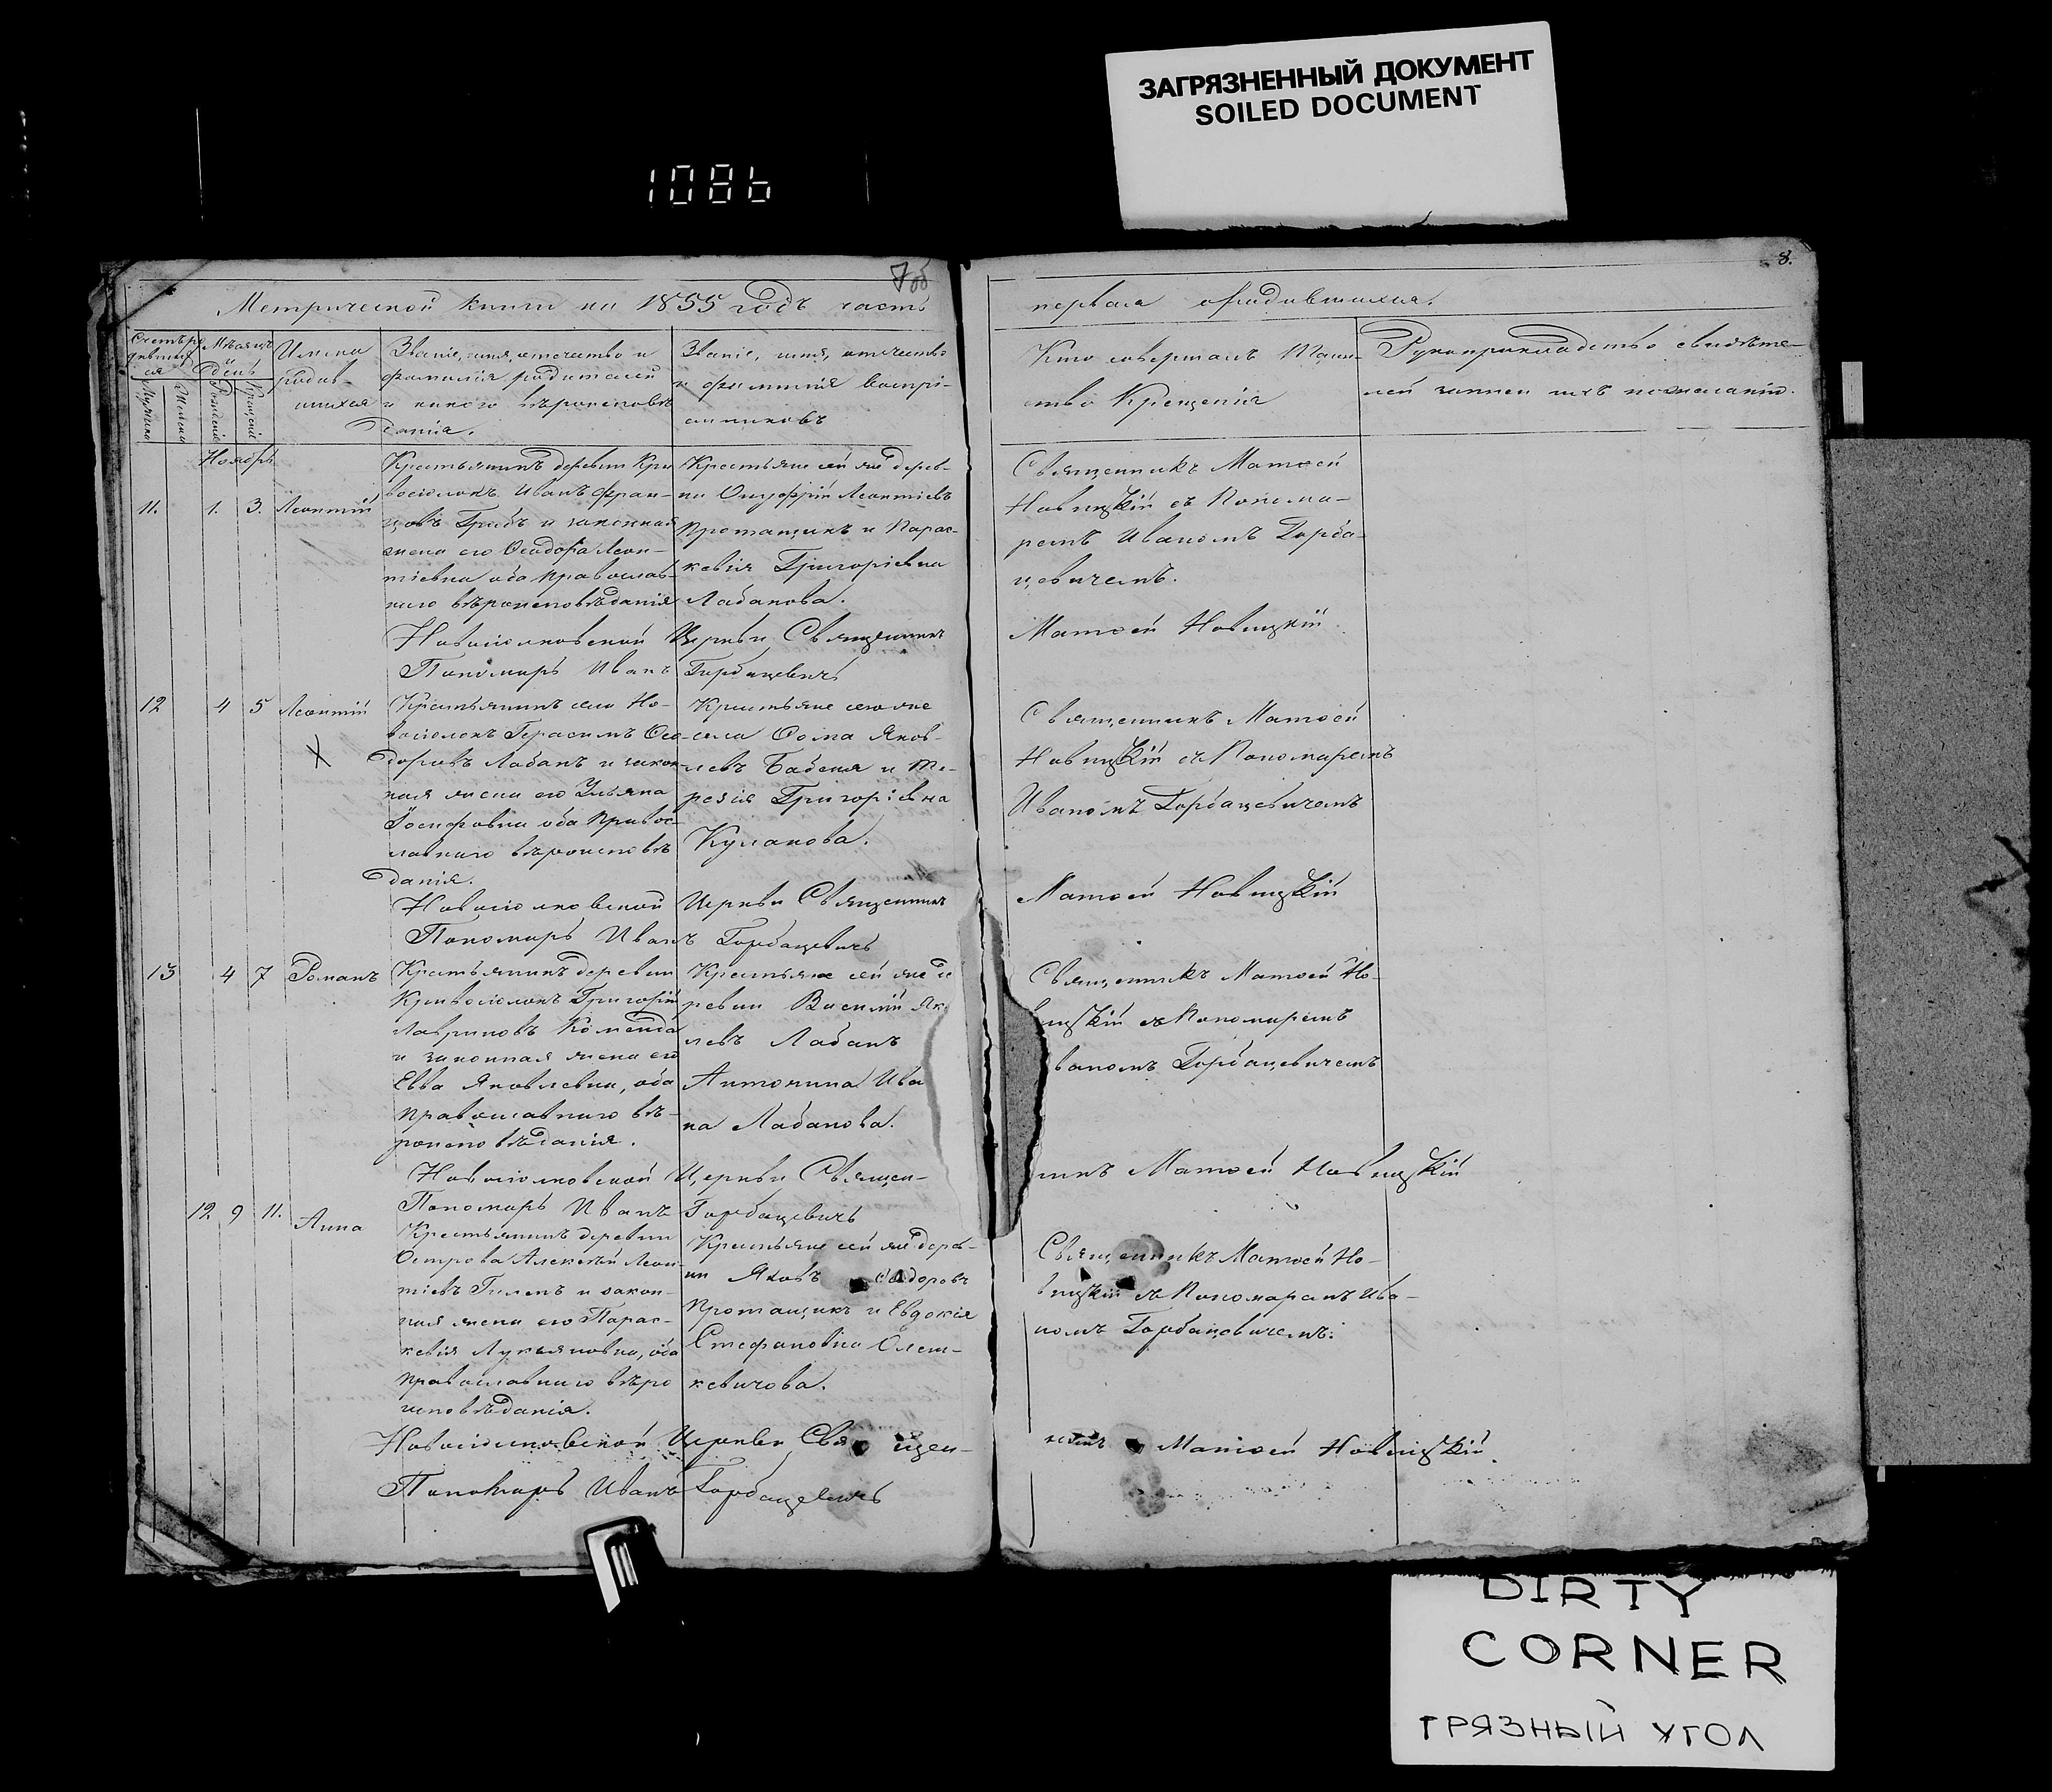 ЗАГРЯЗНЕННЫЙ ДОКУМЕНТ
SOILED DOCUMENT
1086
7об
8.
Метрической книги на 1855 годъ часть
первая о родившихся.
Счетъ родившихся
Мужеска
Женска
Мѣсяцъ и день
Рожденiе
Крещенiе
Имена
родив-
шихся
Званiе, имя, отчество и
фамилiя родителей
и какого вѣроисповѣ
данiя.
Званiе, имя, отчество
и фамилiя воспрi-
емниковъ
Кто совершалъ Таин-
ство Крещенiя
Рукоприкладство свидѣте-
лей записи ихъ по желанiю.
Ноябрь
11. 1. 3. Леонтiй
Крестьянинъ деревни Кри
восiолокъ Иванъ Фран-
цовъ Грибъ и законная
жена его Феодора Леон-
тiевна оба православ-
наго вѣроисповѣданiя
Крестьяне сей же дерев-
ни Онуфрiй Леонтiевъ
Протащикъ и Парас-
кевiя Григорiевна
Лабанова.
Священникъ Матѳей
Новицкiй съ Понома-
ремъ Иваномъ Горба-
цевичемъ.
Новосiолковской Церкви Священникъ Матѳей Новицкiй
Пономарь Иванъ Горбацевичъ
12 4 5 Леонтiй
Крестьянинъ села Но-
восiолокъ Герасимъ Ѳео-
доровъ Лабанъ и закон-
ная жена его Ульяна
Iосифовна оба Правос-
лавнаго вѣроисповѣ
данiя.
Крестьяне того же
села Ѳома Яков-
левъ Бабеня и Те-
резiя Григорiевна
Кулакова.
Священникъ Матѳей
Новицкiй съ Пономаремъ
Иваномъ Горбацевичемъ
Новосiолковской Церкви Священникъ Матѳей Новицкiй
Пономарь Иванъ Горбацевичъ
13 4 7 Романъ
Крестьянинъ деревни
Кривосiолокъ Григорiй
Лавриновъ Коменда
и законная жена его
Евва Яковлевна, оба
православнаго вѣ-
роисповѣданiя.
Крестьяне сей же де
ревни Василiй Як
левъ Лабанъ
Антонина Ива
на Лабанова.
Священникъ Матѳей Но-
вицкiй съ Пономаремъ
ваномъ Горбацевичемъ
Новосiолковской Церкви Священ-
никъ Матѳей Новицкiй
Пономарь Иванъ Горбацевичъ
12 9 11. Анна
Крестьянинъ деревни
Острова Алексѣй Леон
тiевъ Гилепъ и закон-
ная жена его Парас-
кевiя Лукьяновна, оба
православнаго вѣро
исповѣданiя.
Крестьяне сей же дерев-
ни Яковъ Сидоровъ
Протащикъ и Евдокiя
Стефановна Олеш-
кевичова.
Священникъ Матѳей Но-
вицкiй съ Пономаремъ Ива-
номъ Горбацевичемъ.
Новосiолковской Церкви Священ-
никъ Матѳей Новицкiй
Пономарь Иванъ Горбацевичъ
DIRTY
CORNER
ГРЯЗНЫЙ УГОЛ